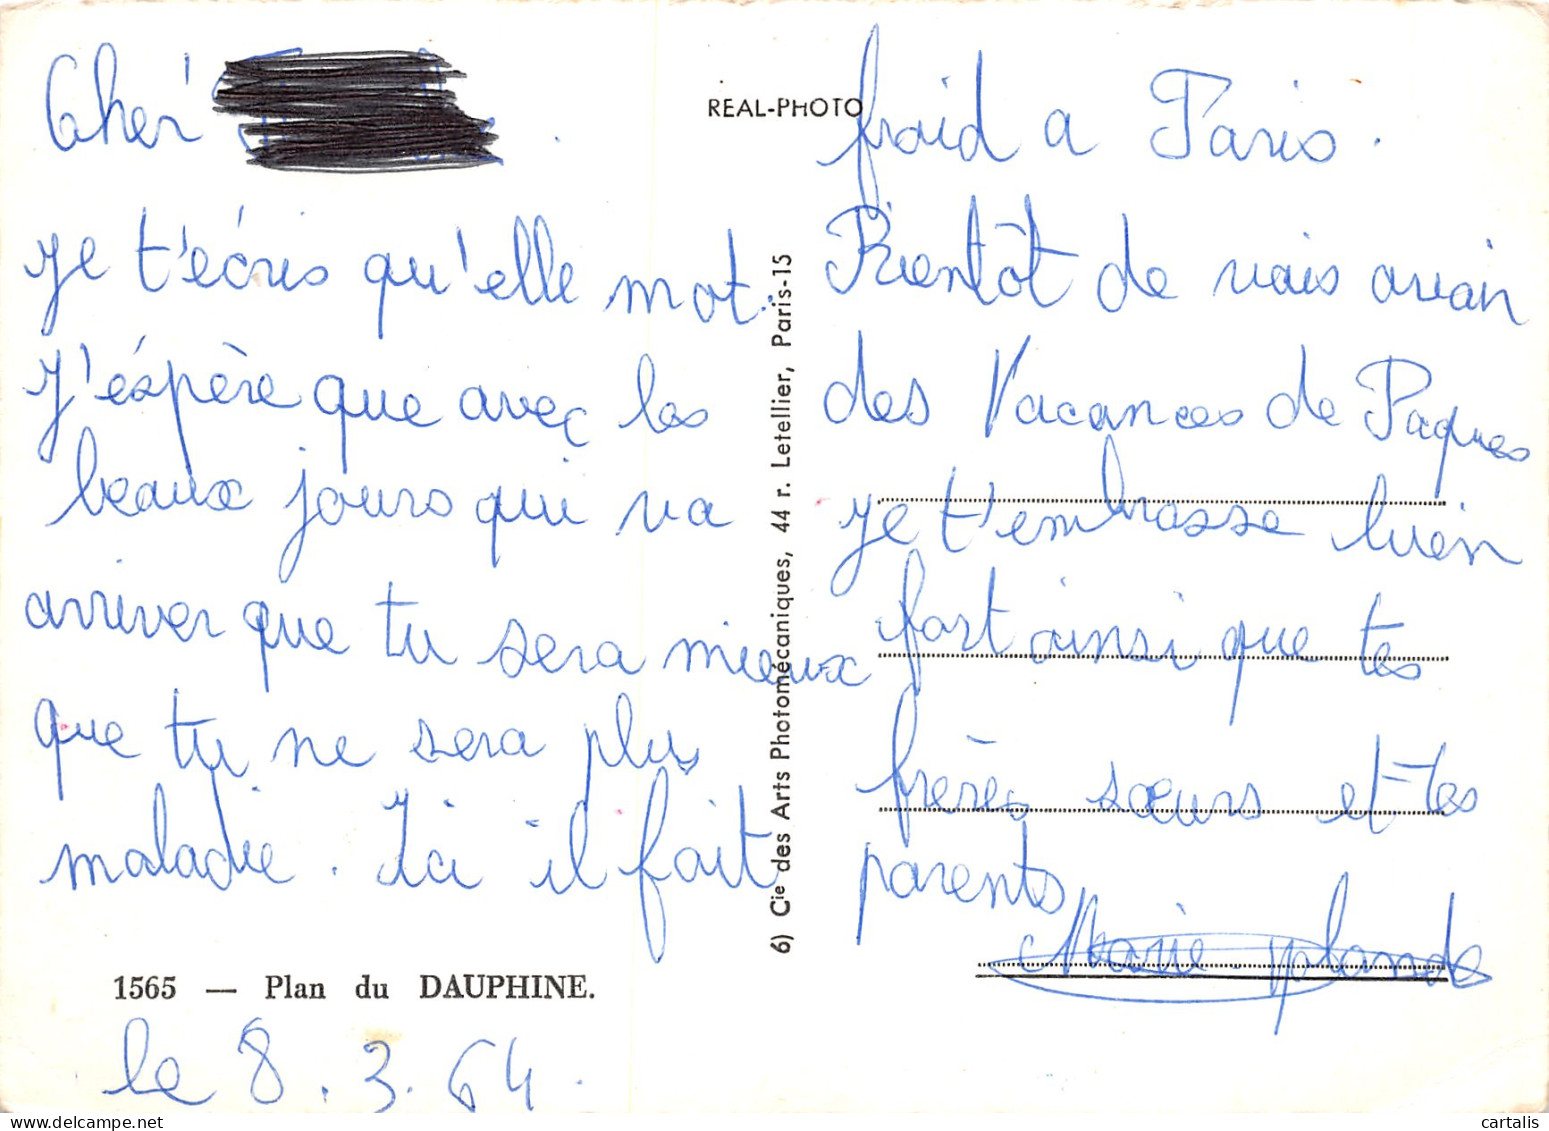 Cher
REAL-PHOTO
je t'écris qu'elle mot.
J'éspère que avec les
beaux jours qui va
arriver que tu sera mieux
que tu ne sera plus
maladie. Ici il fait
froid a Paris.
Bientôt de vais avoir
des Vacances de Paques
je t'embrasse bien
fort ainsi que tes
frères sœurs et tes
parents
Marie
6) Cie des Arts Photomécaniques, 44 r. Letellier, Paris-15
1565 — Plan du DAUPHINE.
le 8.3.64.
cartalis